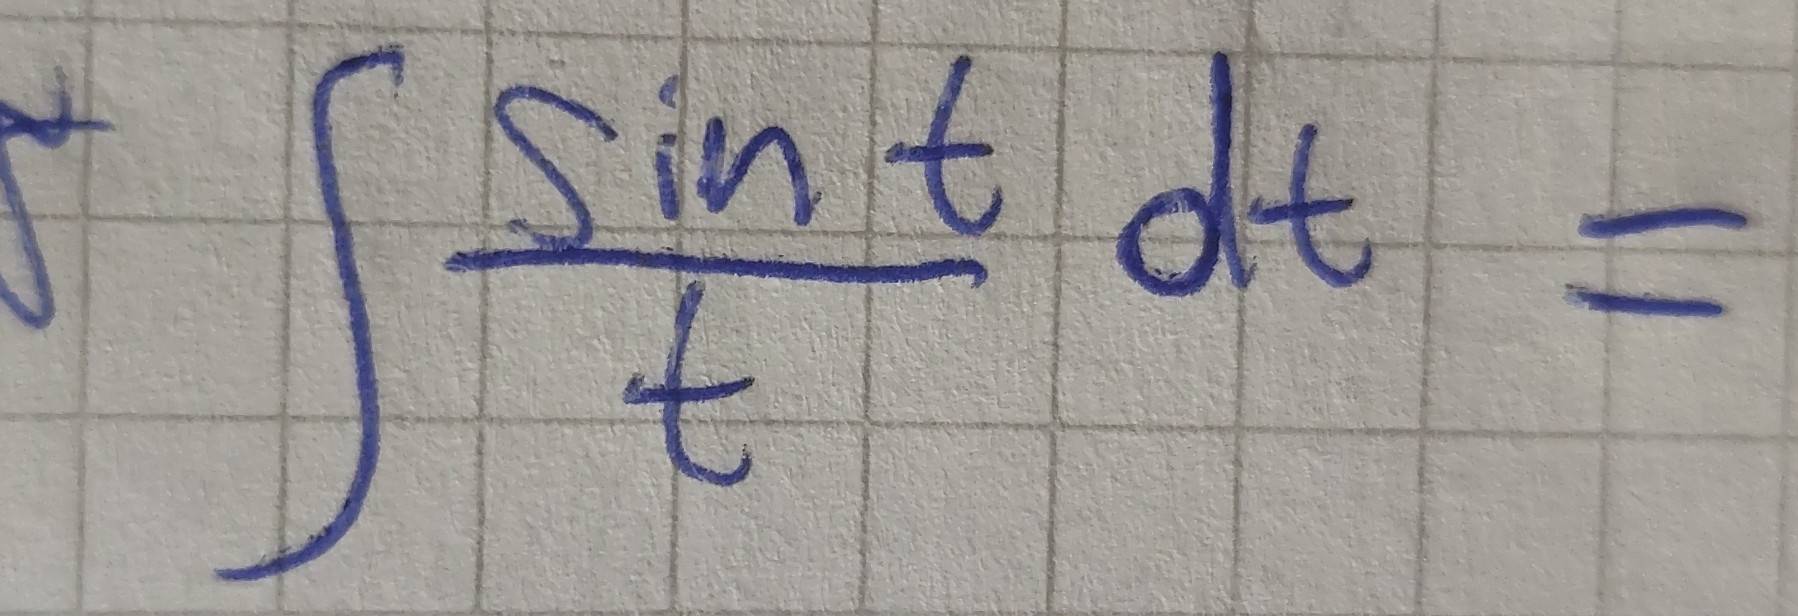 ∫ sin t / t dt =